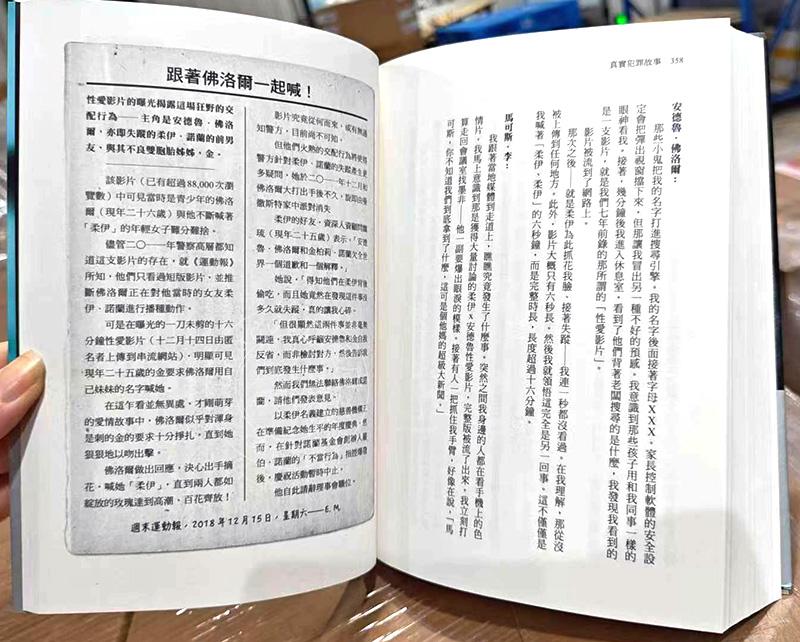 真實犯罪故事 358
安德魯．佛洛爾：
那些小鬼把我的名字打進搜尋引擎。我的名字後面接著字母XXX。家長控制軟體的安全設
定會把彈出視窗擋下來。但那讓我冒出另一種不好的預感。我意識到那些孩子用和我同事一樣的
眼神看我。接著，幾分鐘後我進入休息室，看到了他們背著老闆搜尋的是什麼，我發現我看到的
是一支影片，就是我們七年前錄的那所謂的「性愛影片」。
影片被流到了網路上。
那次之後——就是柔伊為此抓花我臉、接著失蹤——我連一秒都沒看過。在我理解，那從沒
被上傳到任何地方。此外，影片大概只有六秒長。然後我就領悟這完全是另一回事。這不僅僅是
我喊著「柔伊、柔伊」的六秒鐘，而是完整時長，長度超過十六分鐘。
馬可斯．李：
我跟著當地媒體到走道上，瞧瞧究竟發生了什麼事。突然之間我身邊的人都在看手機上的色
情片。我馬上意識到那是獲得大量討論的柔伊x安德魯性愛影片，完整版被流了出來。我立刻打
算走回會議室找墨菲——他一副要爆出眼淚的模樣。接著有人一把抓住我手臂，好像在說，「馬
可斯，你不知道我們到底拿到了什麼，這可是個他媽的超級大新聞。」
跟著佛洛爾一起喊！
性愛影片的曝光揭露這場狂野的交
配行為——主角是安德魯．佛洛
爾，亦即失蹤的柔伊．諾蘭的前男
友，與其不良雙胞胎姊姊，金。
該影片（已有超過88,000次瀏
覽數）中可見當時是青少年的佛洛
爾（現年二十六歲）與他不斷喊著
「柔伊」的年輕女子難分難捨。
儘管二〇一一年警察高層都知
道這支影片的存在，就《運動報》
所知，他們只看過短版影片，並推
斷佛洛爾正在對他當時的女友柔
伊．諾蘭進行播種動作。
可是在曝光的一刀未剪的十六
分鐘性愛影片（十二月十四日由匿
名者上傳到串流網站），明顯可見
現年二十五歲的金要求佛洛爾用自
己妹妹的名字喊她。
在這乍看並無異處，才剛萌芽
的愛情故事中，佛洛爾似乎對渾身
是刺的金的要求十分掙扎，直到她
狠狠地以吻出擊。
佛洛爾做出回應，決心出手摘
花，喊她「柔伊」，直到兩人都如
綻放的玫瑰達到高潮、百花齊放！
影片究竟從何而來，或有無通
知警方，目前尚不可知。
但他們火熱的交配行為將使得
警方針對柔伊．諾蘭的失蹤產生更
多疑問，她於二〇一一年十二月和
佛洛爾大打出手後不久，
徹斯特家中派對消失
柔伊的好友，資深人資顧問劉
琉（現年二十五歲）表示，「安德
魯．佛洛爾和金柏莉．諾蘭欠全世
界一個道歉和一個解釋。」
她說，「得知他們在柔伊背後
偷吃，而且她竟然在發現這件事沒
多久就失蹤，真的讓我心碎。
「但很顯然這兩件事並非毫無
關連，我真心呼籲安德魯和金自我
反省，而非檢討對方，然後告訴我
們到底發生什麼事。」
然而我們無法聯絡佛洛爾或諾
蘭，請他們發表意見。
以柔伊名義建立的慈善機構正
在準備紀念她生平的年度慶典，然
而，在針對諾蘭基金會創辦人羅
伯．諾蘭的「不當行為」指控爆發
後，慶祝活動暫時中止。
他自此請辭理事會職位。
週末運動報，2018年12月15日，星期六——E. M.